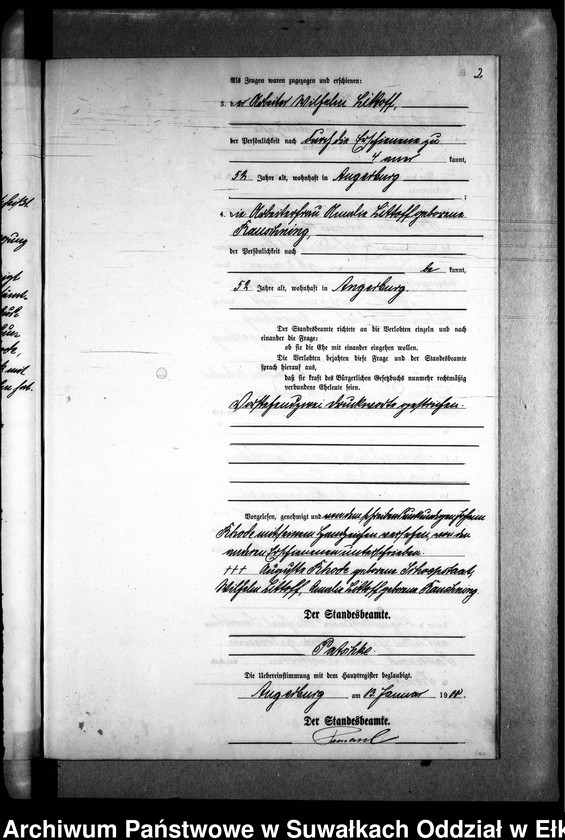 2
Als Zeugen waren zugezogen und erschienen:
3. der Arbeiter Wilhelm Littoff,
der Persönlichkeit nach durch die Erschienene zu
4 aner kannt,
52 Jahre alt, wohnhaft in Angerburg
;
4. die Arbeiterfrau Amalie Littoff geborene
der Persönlichkeit nach
be kannt,
52 Jahre alt, wohnhaft in Angerburg.
Der Standesbeamte richtete an die Verlobten einzeln und nach
einander die Frage:
ob sie die Ehe mit einander eingehen wollen.
Die Verlobten bejahten diese Frage und der Standesbeamte
sprach hierauf aus,
daß sie kraft des Bürgerlichen Gesetzbuchs nunmehr rechtmäßig
verbundene Eheleute seien.
Vorstehend zwei Druckworte gestrichen.
Vorgelesen, genehmigt und von dem schreibensunkundigen Johann
Rhode mit seinem Handzeichen versehen, von den
Erschienenen unterschrieben.
+++ Auguste Rhode geborene
Wilhelm Littoff, Amalie Littoff geborene
Der Standesbeamte.
Patschke.
Die Uebereinstimmung mit dem Hauptregister beglaubigt.
Angerburg am 13. Januar 1900.
Der Standesbeamte.
Archiwum Państwowe w Suwałkach Oddział w Ełk